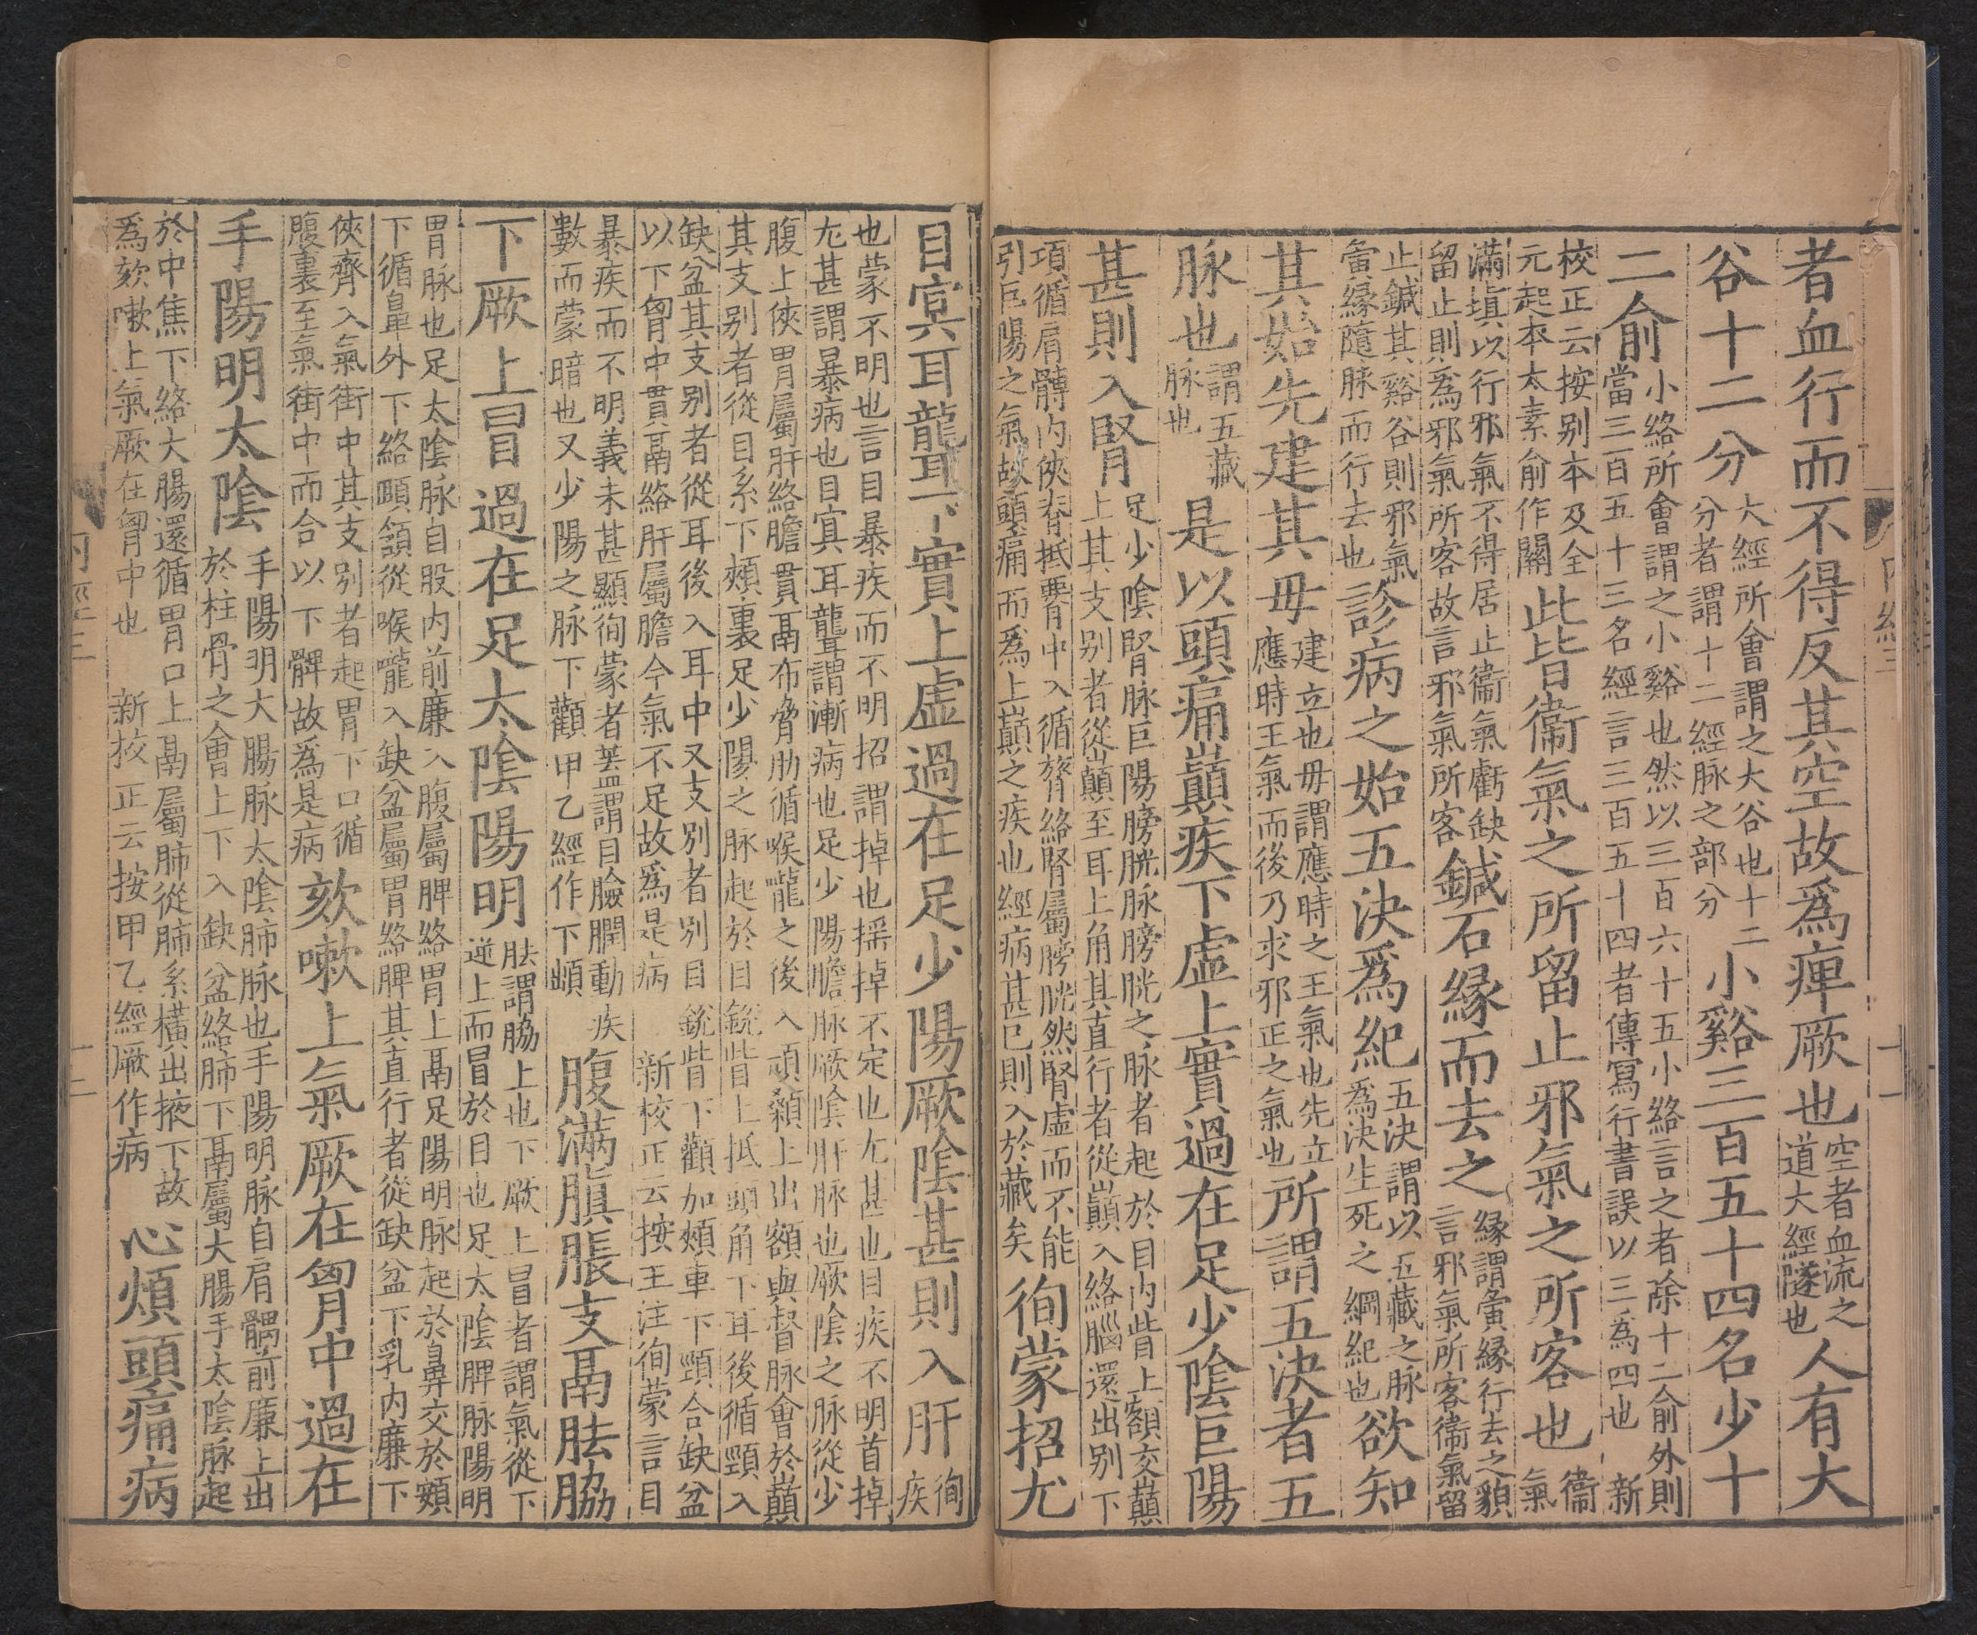 者血行而不得反其空故爲痺厥也空者血流之道大經隧也人有大
谷十二分大經所會謂之大谷也十二分者謂十二經脉之部分小谿三百五十四名少十
二俞小絡所會謂之小谿也然以三百六十五小絡言之者除十二俞外則當三百五十三名經言三百五十四者傳寫行書誤以三爲四也 新
校正云按别本及全元起本太素俞作關此皆衞氣之所留止邪氣之所客也衞氣
滿填以行邪氣不得居止衞氣虧缺留止則爲邪氣所客故言邪氣所客鍼石緣而去之緣謂夤緣行去之貌言邪氣所客衞氣留
止鍼其谿谷則邪氣夤緣隨脉而行去也診病之始五決爲紀五決謂以五藏之脉爲決生死之綱紀也欲知
其始先建其母建立也母謂應時之王氣也先立應時王氣而後乃求邪正之氣也所謂五決者五
脉也謂五藏脉也是以頭痛巔疾下虚上實過在足少陰巨陽
甚則入腎足少陰腎脉巨陽膀胱脉膀胱之脉者起於目内眥上額交巔上其支别者從巔至耳上角其直行者從巔入絡腦還出别下
項循肩髆内俠脊抵腰中入循膂絡腎屬膀胱然腎虚而不能引巨陽之氣故頭痛而爲上巔之疾也經病甚已則入於藏矣徇蒙招尤
目㝠耳聾下實上虚過在足少陽厥陰甚則入肝徇疾
也蒙不明也言目暴疾而不明招謂掉也揺掉不定也尤甚也目疾不明首掉尤甚謂暴病也目㝠耳聾謂漸病也足少陽膽脉厥陰肝脉也厥陰之脉從少
腹上俠胃屬肝絡膽貫鬲布脅肋循喉嚨之後入頏顙上出額與督脉會於巔其支别者從目系下頰裏足少陽之脉起於目銳眥上抵頭角下耳後循頸入
缺盆其支别者從耳後入耳中又支别者别目銳眥下顴加頰車下頸合缺盆以下胷中貫鬲絡肝屬膽今氣不足故爲是病 新校正云按王注徇蒙言目
暴疾而不明義未甚顯徇蒙者蓋謂目瞼瞤動疾數而蒙暗也又少陽之脉下顴甲乙經作下䪼腹滿䐜脹支鬲胠脇
下厥上冒過在足太陰陽明胠謂脇上也下厥上冒者謂氣從下逆上而冒於目也足太陰脾脉陽明
胃脉也足太陰脉自股内前廉入腹屬脾絡胃上鬲足陽明脉起於鼻交於頞下循鼻外下絡頤頷從喉嚨入缺盆屬胃絡脾其直行者從缺盆下乳内廉下
俠齊入氣街中其支别者起胃下口循腹裏至氣街中而合以下髀故爲是病欬嗽上氣厥在胷中過在
手陽明太陰手陽明大腸脉太陰肺脉也手陽明脉自肩髃前廉上出於柱骨之會上下入缺盆絡肺下鬲屬大腸手太陰脉起
於中焦下絡大腸還循胃口上鬲屬肺從肺系橫出掖下故爲欬嗽上氣厥在胷中也 新校正云按甲乙經厥作病心煩頭痛病
内經三
十二